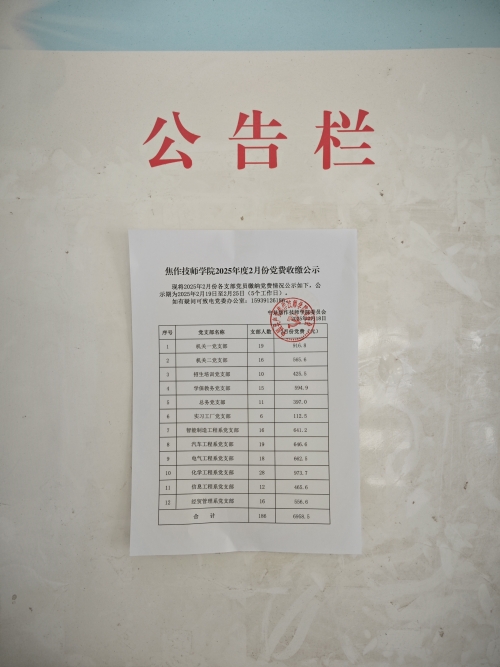 公告栏
焦作技师学院2025年度2月份党费收缴公示
现将2025年2月份各支部党员缴纳党费情况公示如下，公
示期为2025年2月19日至2月25日（5个工作日）。
如有疑问可致电党委办公室：15939126
焦作技师学院委员会
序号 党支部名称 支部人数 月份党费（元）
1 机关一党支部 19 915.8
2 机关二党支部 16 565.6
3 招生培训党支部 10 425.5
4 学保教务党支部 15 594.9
5 总务党支部 11 397.0
6 实习工厂党支部 6 112.5
7 智能制造工程系党支部 16 641.2
8 汽车工程系党支部 19 646.6
9 电气工程系党支部 18 662.5
10 化学工程系党支部 28 973.7
11 信息工程系党支部 12 465.6
12 经贸管理系党支部 16
合 计 186 6958.5